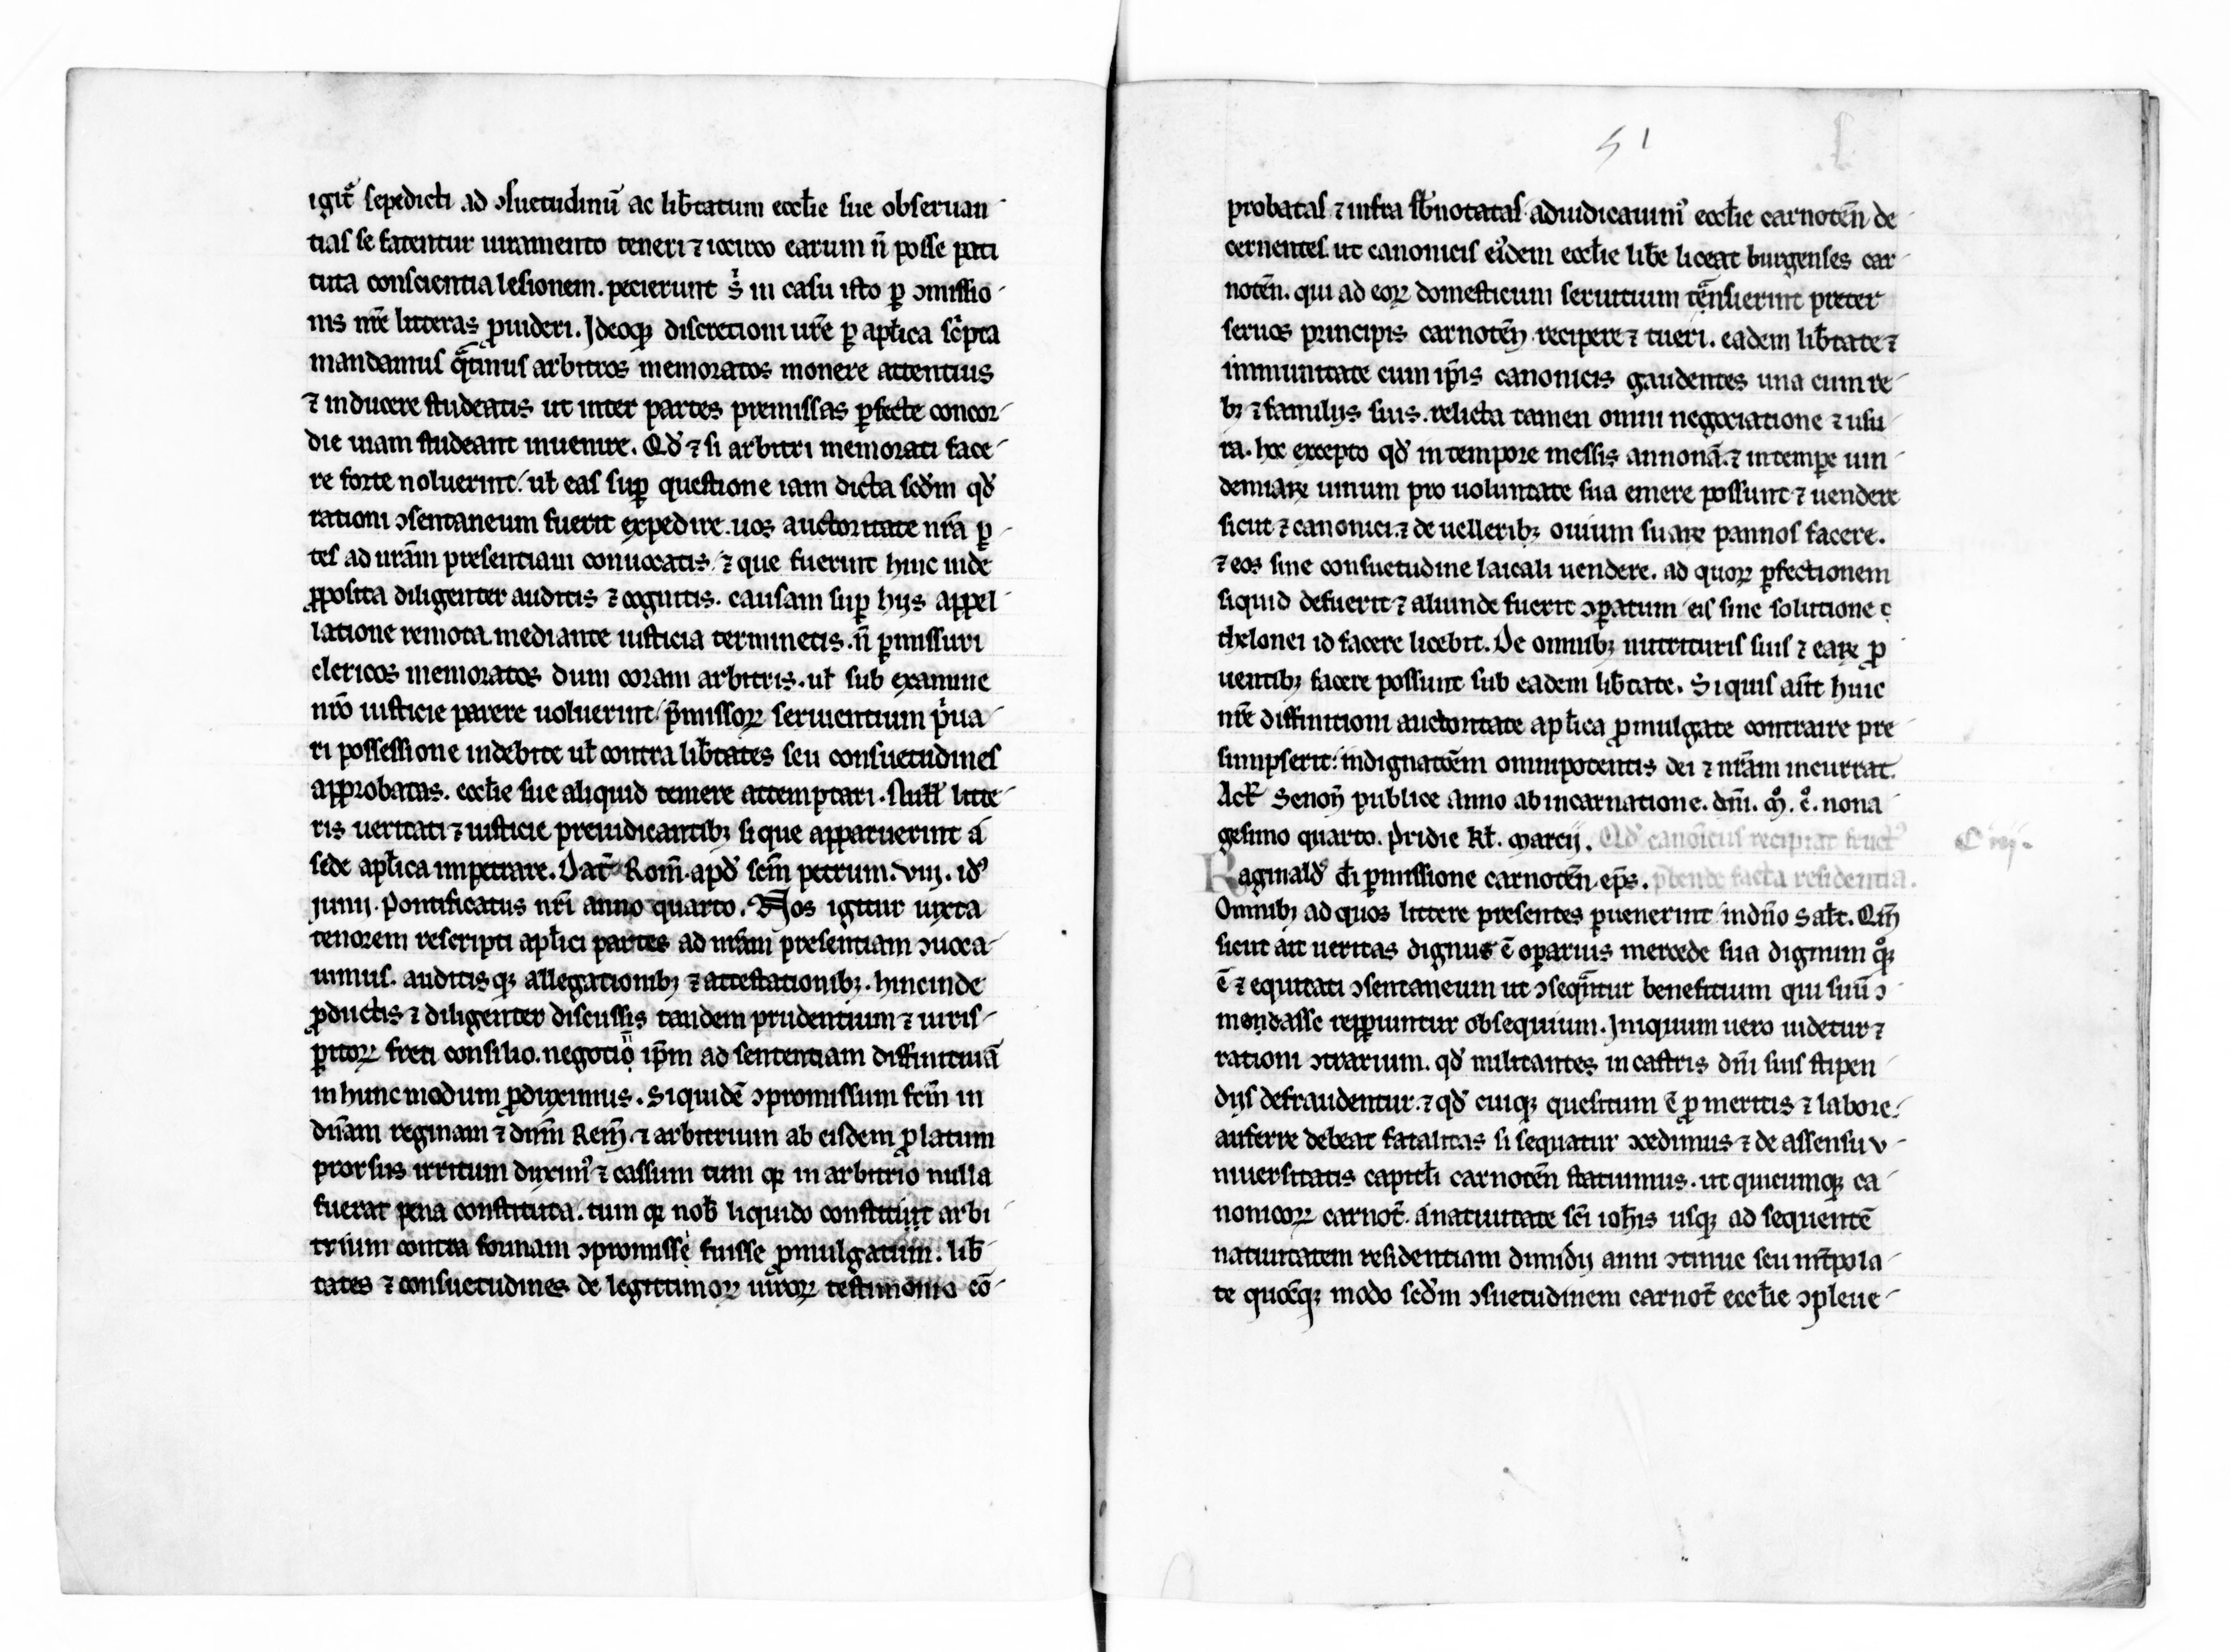 igit̃ sepedicti ad ↄsuetudinũ ac lib̃tatum eccl̃ie sue obseruan
tias se fatentur iuramento teneri ⁊ iccirco earum ñ posse pati
tuta conscientia lesionem. pecierunt sͥ in casu isto ꝑ ↄmissio
nis nr̃e litteras ꝓuideri. Ideoqꝫ discretioni ur̃e ꝑ apl̃ica scͥpta
mandamus qͣtinus arbitros memoratos monere attentius
⁊ inducere studeatis ut inter partes premissas ꝑfecte concor
die uiam studeant inuenire. Qd̃ ⁊ si arbitri memorati face
re forte noluerint / ul̃ eas suꝑ questione iam dicta scd̃m qd̃
rationi ↄsentaneum fuerit expedire. uos auctoritate nr̃a ꝑ
tes ad ur̃am presentiam conuocatis / ⁊ que fuerint hinc inde
ꝓposita diligenter auditis ⁊ cognitis. causam suꝑ hijs appel
latione remota mediante iusticia terminetis. ñ ꝑmissuri
clericos memoratos dum coram arbitris. ul̃ sub examine
nr̃o iusticie parere uoluerint / p̃missoꝝ seruientium pͥua
ri possessione indebite ul̃ contra lib̃tates seu consuetudines
approbatas. eccl̃ie sue aliquid temere attemptari. Null̃ litte
ris ueritati ⁊ iusticie preiudicantibꝫ si que apparuerint a
sede apl̃ica impetrare. Dat̃ Rom̃ apd̃ sc̃m petrum. viij. idꝰ
junij. Pontificatus nr̃i anno quarto. Nos igitur iuxta
tenorem rescripti apl̃ici partes ad nr̃am presentiam ↄuoca
uimus. auditisqꝫ allegationibꝫ ⁊ attestationibꝫ. hincinde
ꝓductis ⁊ diligenter discussis tandem prudentium ⁊ iuris
ꝑitoꝝ freti consilio. negotiũ ip̃m ad sententiam diffinitiuã
in hunc modum ꝓduximus. Siquidẽ ↄpromissum fc̃m in
dñam reginam ⁊ dñm Rem̃. ⁊ arbitrium ab eisdem ꝓlatum
prorsus irritum diximꝰ ⁊ cassum tum qꝫ in arbitrio nulla
fuerat pena constituta. tum qꝫ nob̃ liquido constitit arbi
trium contra formam ↄpromissi fuisse ꝓmulgatum. lib̃
tates ⁊ consuetudines de legittimoꝝ uiroꝝ testimonio cõ
51
probatas ⁊ infra sb̃notatas adiudicauimꝰ eccl̃ie carnotẽn de
cernentes. ut canonicis eiꝰdem eccl̃ie lib̃e liceat burgenses car
notẽn. qui ad eoꝝ domesticum seruitium tͣnsierint preter
seruos principis carnotẽn recipere ⁊ tueri. eadem lib̃tate ⁊
immunitate cum ip̃is canonicis gaudentes una cum re
bꝫ ⁊ familijs suis. relicta tamen omni negociatione ⁊ usu
ra. hoc excepto qd̃ in tempore messis annonã. ⁊ in tempe uin
demiaꝝ uinum pro uoluntate sua emere possunt ⁊ uendere
sicut ⁊ canonici. ⁊ de uelleribꝫ ouium suaꝝ pannos facere.
⁊ eos sine consuetudine laicali uendere. ad quoꝝ ꝑfectionem
siquid defuerit ⁊ aliunde fuerit ↄꝑatum / eis sine solutione
thelonei id facere licebit. De omnibꝫ nutrituris suis ⁊ eaꝝ ꝓ
uentibꝫ facere possunt sub eadem lib̃tate. Siquis aut̃ huic
nr̃e diffinitioni auctoritate apl̃ica ꝓmulgate contraire pre
sumpserit: indignatõem omnipotentis dei ⁊ nr̃am incurrat.
Act̃ Senoñ publice anno ab incarnatione. dñi. mͦ. cͦ. nona
gesimo quarto. pridie kl̃. marcij. Qd̃ canonicus recipiat fruct̃
C iij.
Raginaldꝰ di ꝑmissione carnotẽn ep̃s. p̃bende facta residentia.
Omnibꝫ ad quos littere presentes ꝑuenerint / in dño Salt̃. Qm̃
sicut ait ueritas dignus ẽ oꝑarius mercede sua dignum qͦqꝫ
ẽ ⁊ equitati ↄsentaneum ut ↄseqͣntur beneficium qui suũ ↄ
mondasse repꝑiuntur obsequium. Iniquum uero uidetur ⁊
rationi ↄtrarium. qd̃ militantes in castris dñi suis stipen
dijs defraudentur. ⁊ qd̃ cuiqꝫ quesitum ẽ ꝓ meritis ⁊ labore.
auferre debeat fatalitas si sequatur ↄcedimus ⁊ de assensu v
niuersitatis capitl̃i carnotẽn statuimus. ut quicumqꝫ ca
nonicoꝝ carnot̃. a natiuitate sc̃i ioh̃is usqꝫ ad sequentẽ
natiuitatem residentiam dimidij anni ↄtinue seu int̃pola
te quocũqꝫ modo scd̃m ↄsuetudinem carnot̃ eccl̃ie ↄpleue